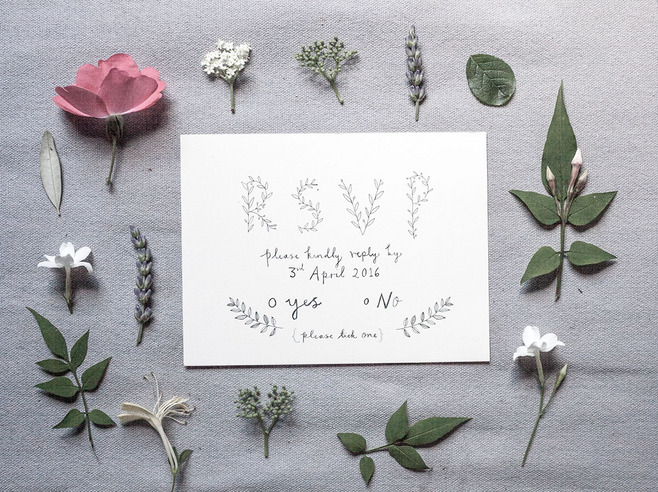 RSVP
please kindly reply by
3rd April 2016
o yes o No
{please tick one}